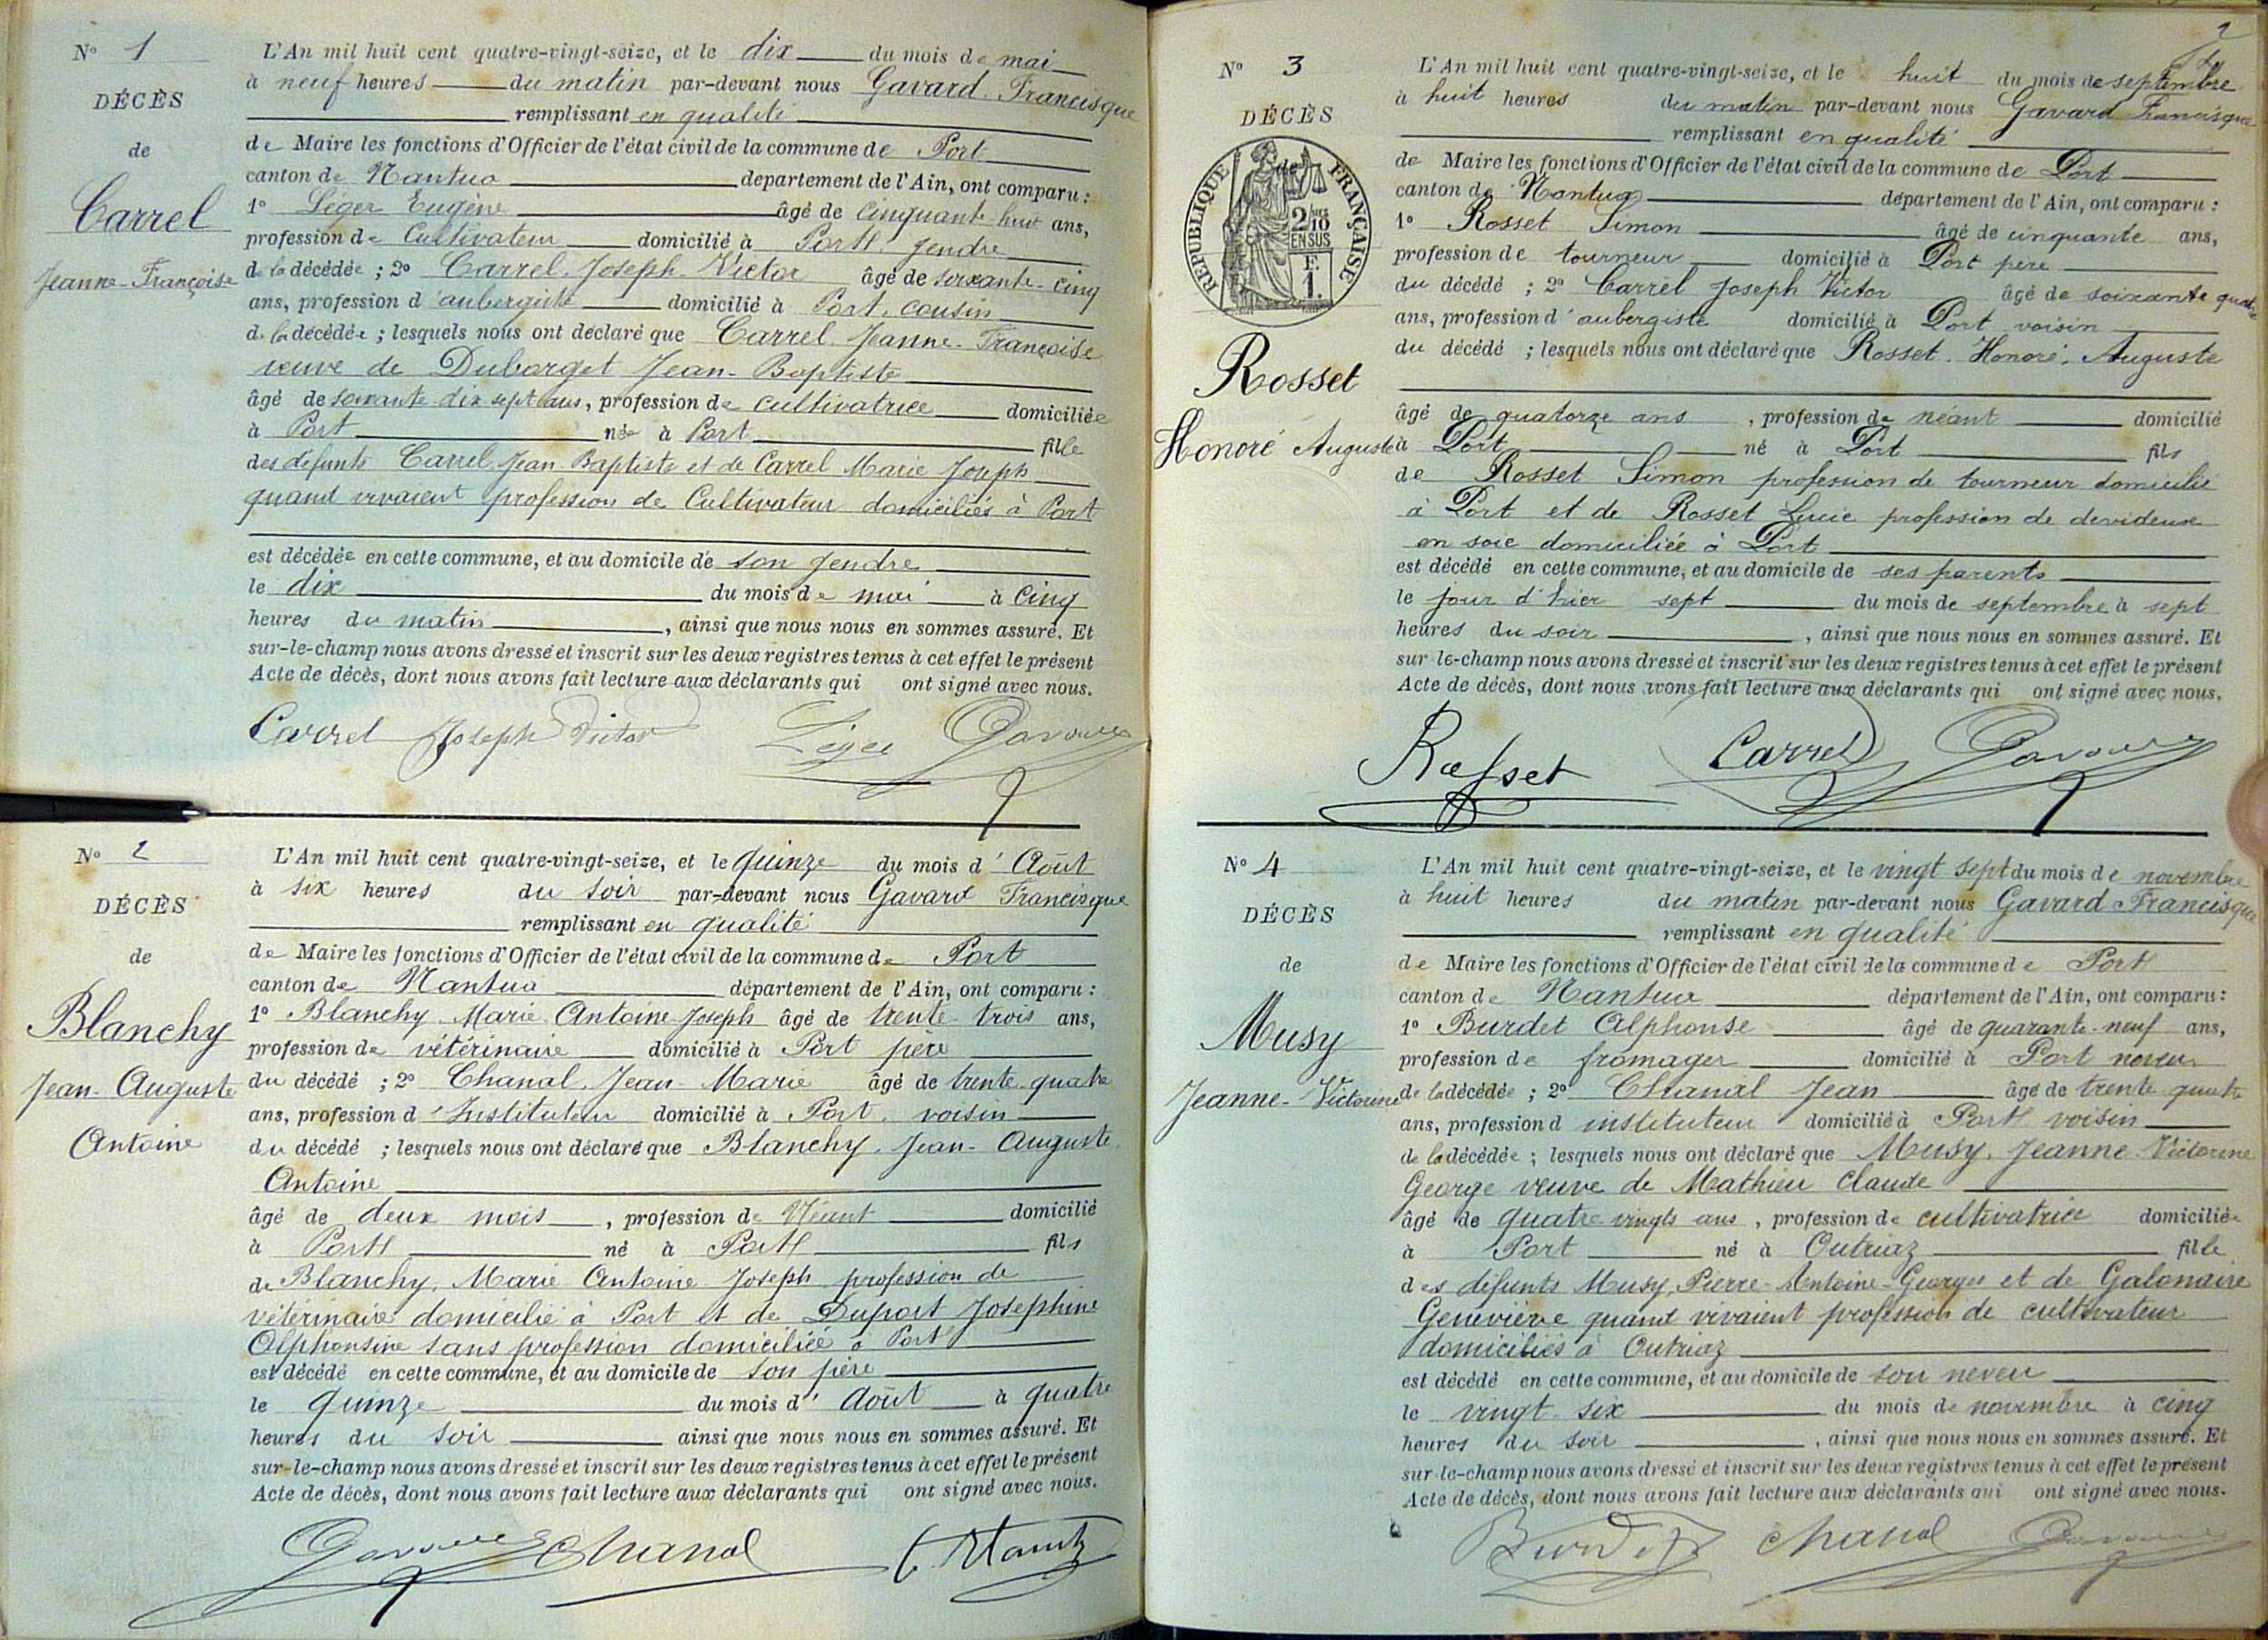 N° 1
DÉCÈS
de
Carrel
Jeanne-Françoise
L'An mil huit cent quatre-vingt-seize, et le dix du mois de mai
à neuf heures du matin par-devant nous Gavard Francisque
remplissant en qualité
de Maire les fonctions d'Officier de l'état civil de la commune de Port
canton de Nantua département de l'Ain, ont comparu :
1° Léger Eugène âgé de cinquante-huit ans,
profession de Cultivateur domicilié à Port gendre
de la décédée ; 2° Carrel Joseph Victor âgé de soixante-cinq
ans, profession d'aubergiste domicilié à Port, cousin
de la décédée ; lesquels nous ont déclaré que Carrel Jeanne-Françoise
veuve de Dubarget Jean-Baptiste
âgé de soixante dix sept ans, profession de cultivatrice domiciliée
à Port née à Port fille
des défunts Carrel Jean Baptiste et de Carrel Marie Joseph
quand vivaient profession de Cultivateur domiciliés à Port
est décédée en cette commune, et au domicile de son gendre
le dix du mois de mai à cinq
heures du matin, ainsi que nous nous en sommes assuré. Et
sur-le-champ nous avons dressé et inscrit sur les deux registres tenus à cet effet le présent
Acte de décès, dont nous avons fait lecture aux déclarants qui ont signé avec nous.
Carrel Joseph Victor Léger Gavard
N° 2
DÉCÈS
de
Blanchy
Jean-Auguste
Antoine
L'An mil huit cent quatre-vingt-seize, et le quinze du mois d'Août
à six heures du soir par-devant nous Gavard Francisque
remplissant en qualité
de Maire les fonctions d'Officier de l'état civil de la commune de Port
canton de Nantua département de l'Ain, ont comparu :
1° Blanchy Marie Antoine Joseph âgé de trente-trois ans,
profession de vétérinaire domicilié à Port père
du décédé ; 2° Chanal Jean-Marie âgé de trente-quatre
ans, profession d'Instituteur domicilié à Port, voisin
du décédé ; lesquels nous ont déclaré que Blanchy, Jean-Auguste
Antoine
âgé de deux mois, profession de Néant domicilié
à Port né à Port fils
de Blanchy, Marie Antoine Joseph profession de
vétérinaire domicilié à Port et de Duport Joséphine
Alphonsine sans profession domiciliée à Port
est décédé en cette commune, et au domicile de son père
le quinze du mois d'Août à quatre
heures du soir ainsi que nous nous en sommes assuré. Et
sur-le-champ nous avons dressé et inscrit sur les deux registres tenus à cet effet le présent
Acte de décès, dont nous avons fait lecture aux déclarants qui ont signé avec nous.
Gavard Chanal
2
N° 3
DÉCÈS
de
RÉPUBLIQUE FRANÇAISE
2/10
EN SUS
F.
1.
Rosset
Honoré Auguste
L'An mil huit cent quatre-vingt-seize, et le huit du mois de septembre
à huit heures du matin par-devant nous Gavard Francisque
remplissant en qualité
de Maire les fonctions d'Officier de l'état civil de la commune de Port
canton de Nantua département de l'Ain, ont comparu :
1° Rosset Simon âgé de cinquante ans,
profession de tourneur domicilié à Port père
du décédé ; 2° Carrel Joseph Victor âgé de soixante quatre
ans, profession d'aubergiste domicilié à Port voisin
du décédé ; lesquels nous ont déclaré que Rosset Honoré Auguste
âgé de quatorze ans, profession de néant domicilié
à Port né à Port fils
de Rosset Simon profession de tourneur domicilié
à Port et de Rosset Lucie profession de devideuse
en soie domiciliée à Port
est décédé en cette commune, et au domicile de ses parents
le jour d'hier sept du mois de septembre à sept
heures du soir, ainsi que nous nous en sommes assuré. Et
sur-le-champ nous avons dressé et inscrit sur les deux registres tenus à cet effet le présent
Acte de décès, dont nous avons fait lecture aux déclarants qui ont signé avec nous.
Rosset Carrel Gavard
N° 4
DÉCÈS
de
Musy
Jeanne-Victorine
L'An mil huit cent quatre-vingt-seize, et le vingt sept du mois de novembre
à huit heures du matin par-devant nous Gavard Francisque
remplissant en qualité
de Maire les fonctions d'Officier de l'état civil de la commune de Port
canton de Nantua département de l'Ain, ont comparu :
1° Burdet Alphonse âgé de quarante-neuf ans,
profession de fromager domicilié à Port neveu
de la décédée ; 2° Chanal Jean âgé de trente quatre
ans, profession d instituteur domicilié à Port voisin
de la décédée ; lesquels nous ont déclaré que Musy, Jeanne Victorine
George veuve de Mathieu Claude
âgé de quatre vingts ans, profession de cultivatrice domiciliée
à Port né à Outriaz fille
des défunts Musy, Pierre-Antoine-Georges et de Galonaire
Geneviève quand vivaient profession de cultivateur
domiciliés à Outriaz
est décédé en cette commune, et au domicile de son neveu
le vingt-six du mois de novembre à cinq
heures du soir, ainsi que nous nous en sommes assuré. Et
sur-le-champ nous avons dressé et inscrit sur les deux registres tenus à cet effet le présent
Acte de décès, dont nous avons fait lecture aux déclarants qui ont signé avec nous.
Burdet Chanal Gavard